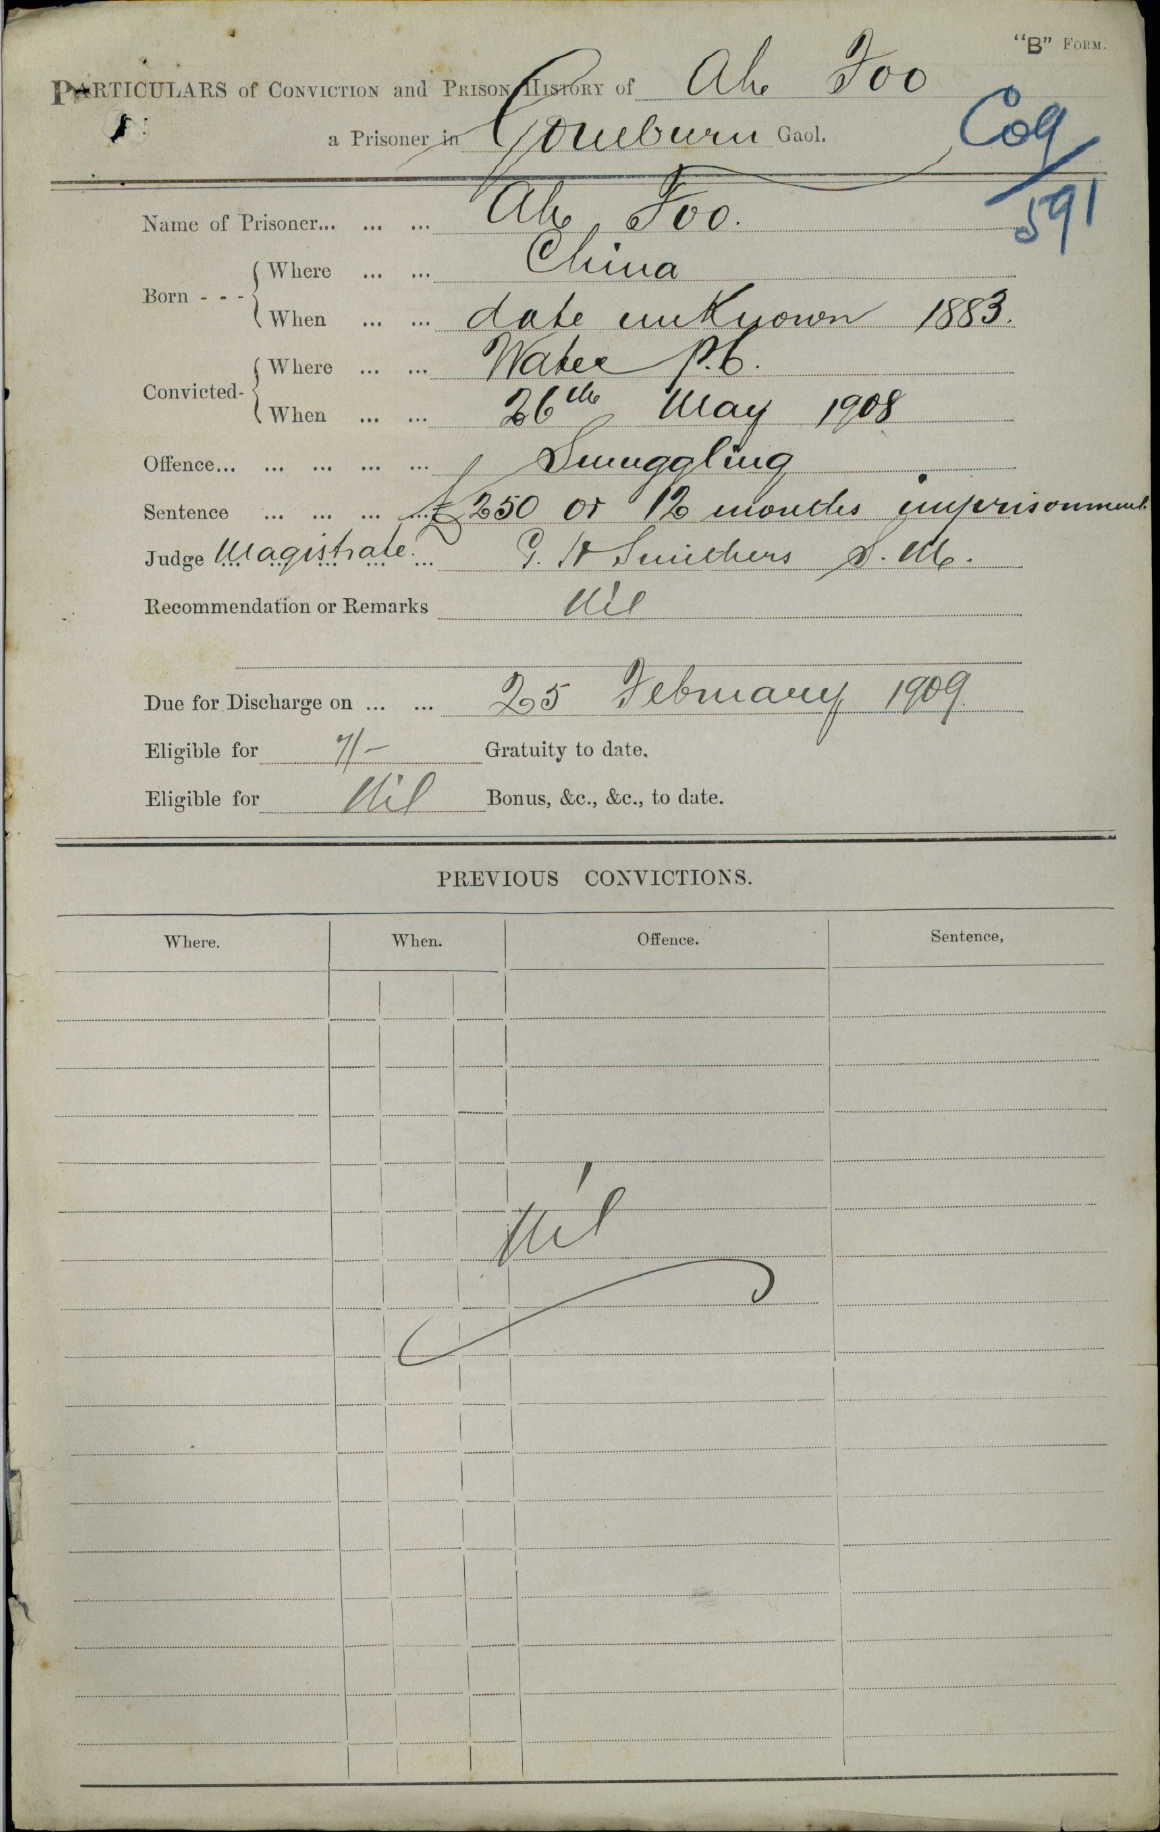 "B" FORM.
PARTICULARS of CONVICTION and PRISON HISTORY of Ah Foo
a Prisoner in Goulburn Gaol.
Cog
591
Name of Prisoner... ... ... Ah Foo.
Born - - - Where ... ... China
When ... ... date unknown 1883.
Convicted- Where ... ... Water P.C.
When ... ... 26th May 1908
Offence... ... ... ... ... Smuggling
Sentence ... ... ... ... £250 or 12 months imprisonment.
Judge Magistrate. ... G. H Smithers S. M.
Recommendation or Remarks Nil
Due for Discharge on ... ... 25 February 1909.
Eligible for 7/- Gratuity to date.
Eligible for Nil Bonus, &c., &c., to date.
PREVIOUS CONVICTIONS.
Where. When. Offence. Sentence,
Nil